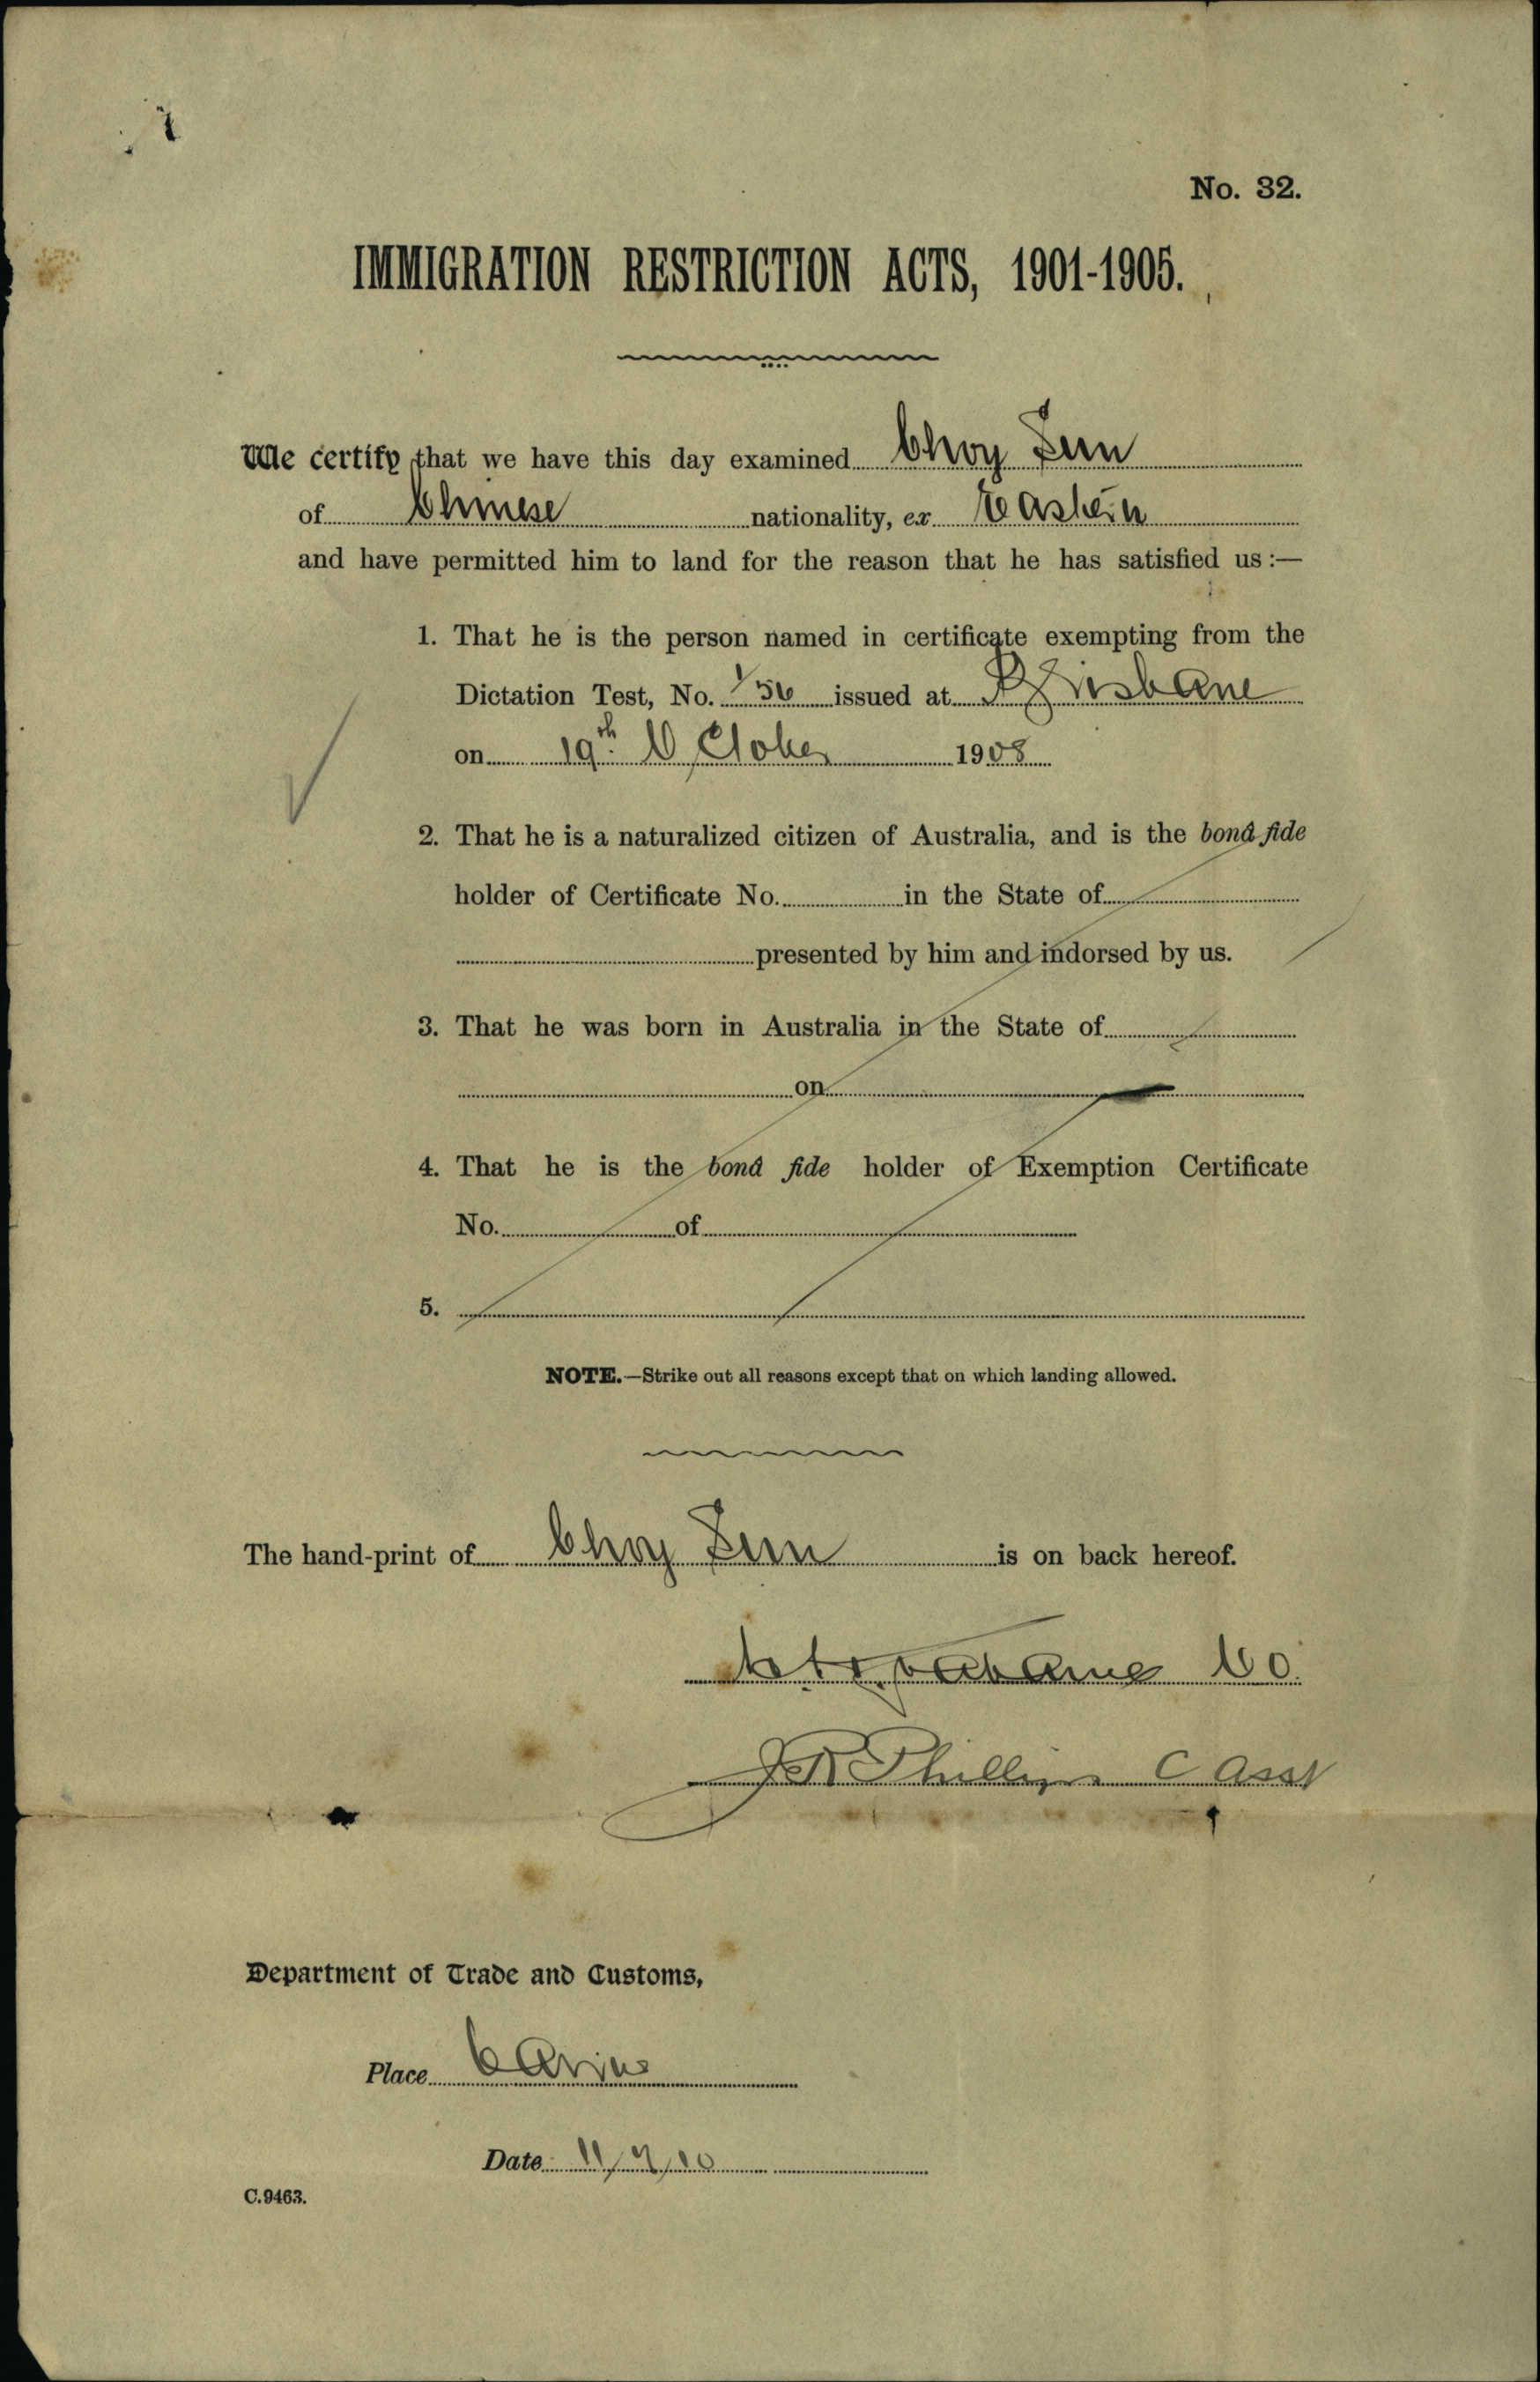 No. 32.
IMMIGRATION RESTRICTION ACTS, 1901-1905.
We certify that we have this day examined Choy Sun
of Chinese nationality, ex Eastern
and have permitted him to land for the reason that he has satisfied us :—
1. That he is the person named in certificate exempting from the
Dictation Test, No. 156 issued at Brisbane
on 19th October 1908
2. That he is a naturalized citizen of Australia, and is the bonâ fide
holder of Certificate No. in the State of
presented by him and indorsed by us.
3. That he was born in Australia in the State of
on
4. That he is the bonâ fide holder of Exemption Certificate
No. of
5.
NOTE.—Strike out all reasons except that on which landing allowed.
The hand-print of Choy Sun is on back hereof.
CO.
Phillips C Asst
Department of Trade and Customs,
Place Cairns
Date 11/7/10
C.9463.